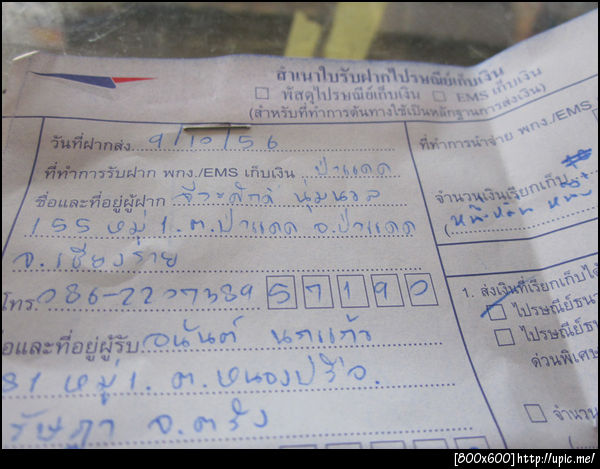 สำเนาใบรับฝากไปรษณีย์เก็บเงิน
☐ พัสดุไปรษณีย์เก็บเงิน ☐ EMS เก็บเงิน
(สำหรับที่ทำการต้นทางใช้เป็นหลักฐานการส่งเงิน)
วันที่ฝากส่ง 9/10/56
ที่ทำการรับฝาก พกง./EMS เก็บเงิน ป่าแดด
ชื่อและที่อยู่ผู้ฝาก จีระศักดิ์ นุ่มนวล
155 หมู่ 1. ต.ป่าแดด อ.ป่าแดด
จ.เชียงราย
โทร. 086-2207389 57190
อและที่อยู่ผู้รับ อนันต์ นกแก้ว
81 หมู่ 1. ต.หนองปรือ.
รัษฎา จ.ตรัง
ที่ทำการนำจ่าย พกง./EMS
จำนวนเงินเรียกเก็บ
1. ส่งเงินที่เรียกเก็บได้
ไปรษณีย์ธนา
☐ ไปรษณีย์ธนา
ด่วนพิเศษ
☐ จำนวน
[800x600]http://upic.me/